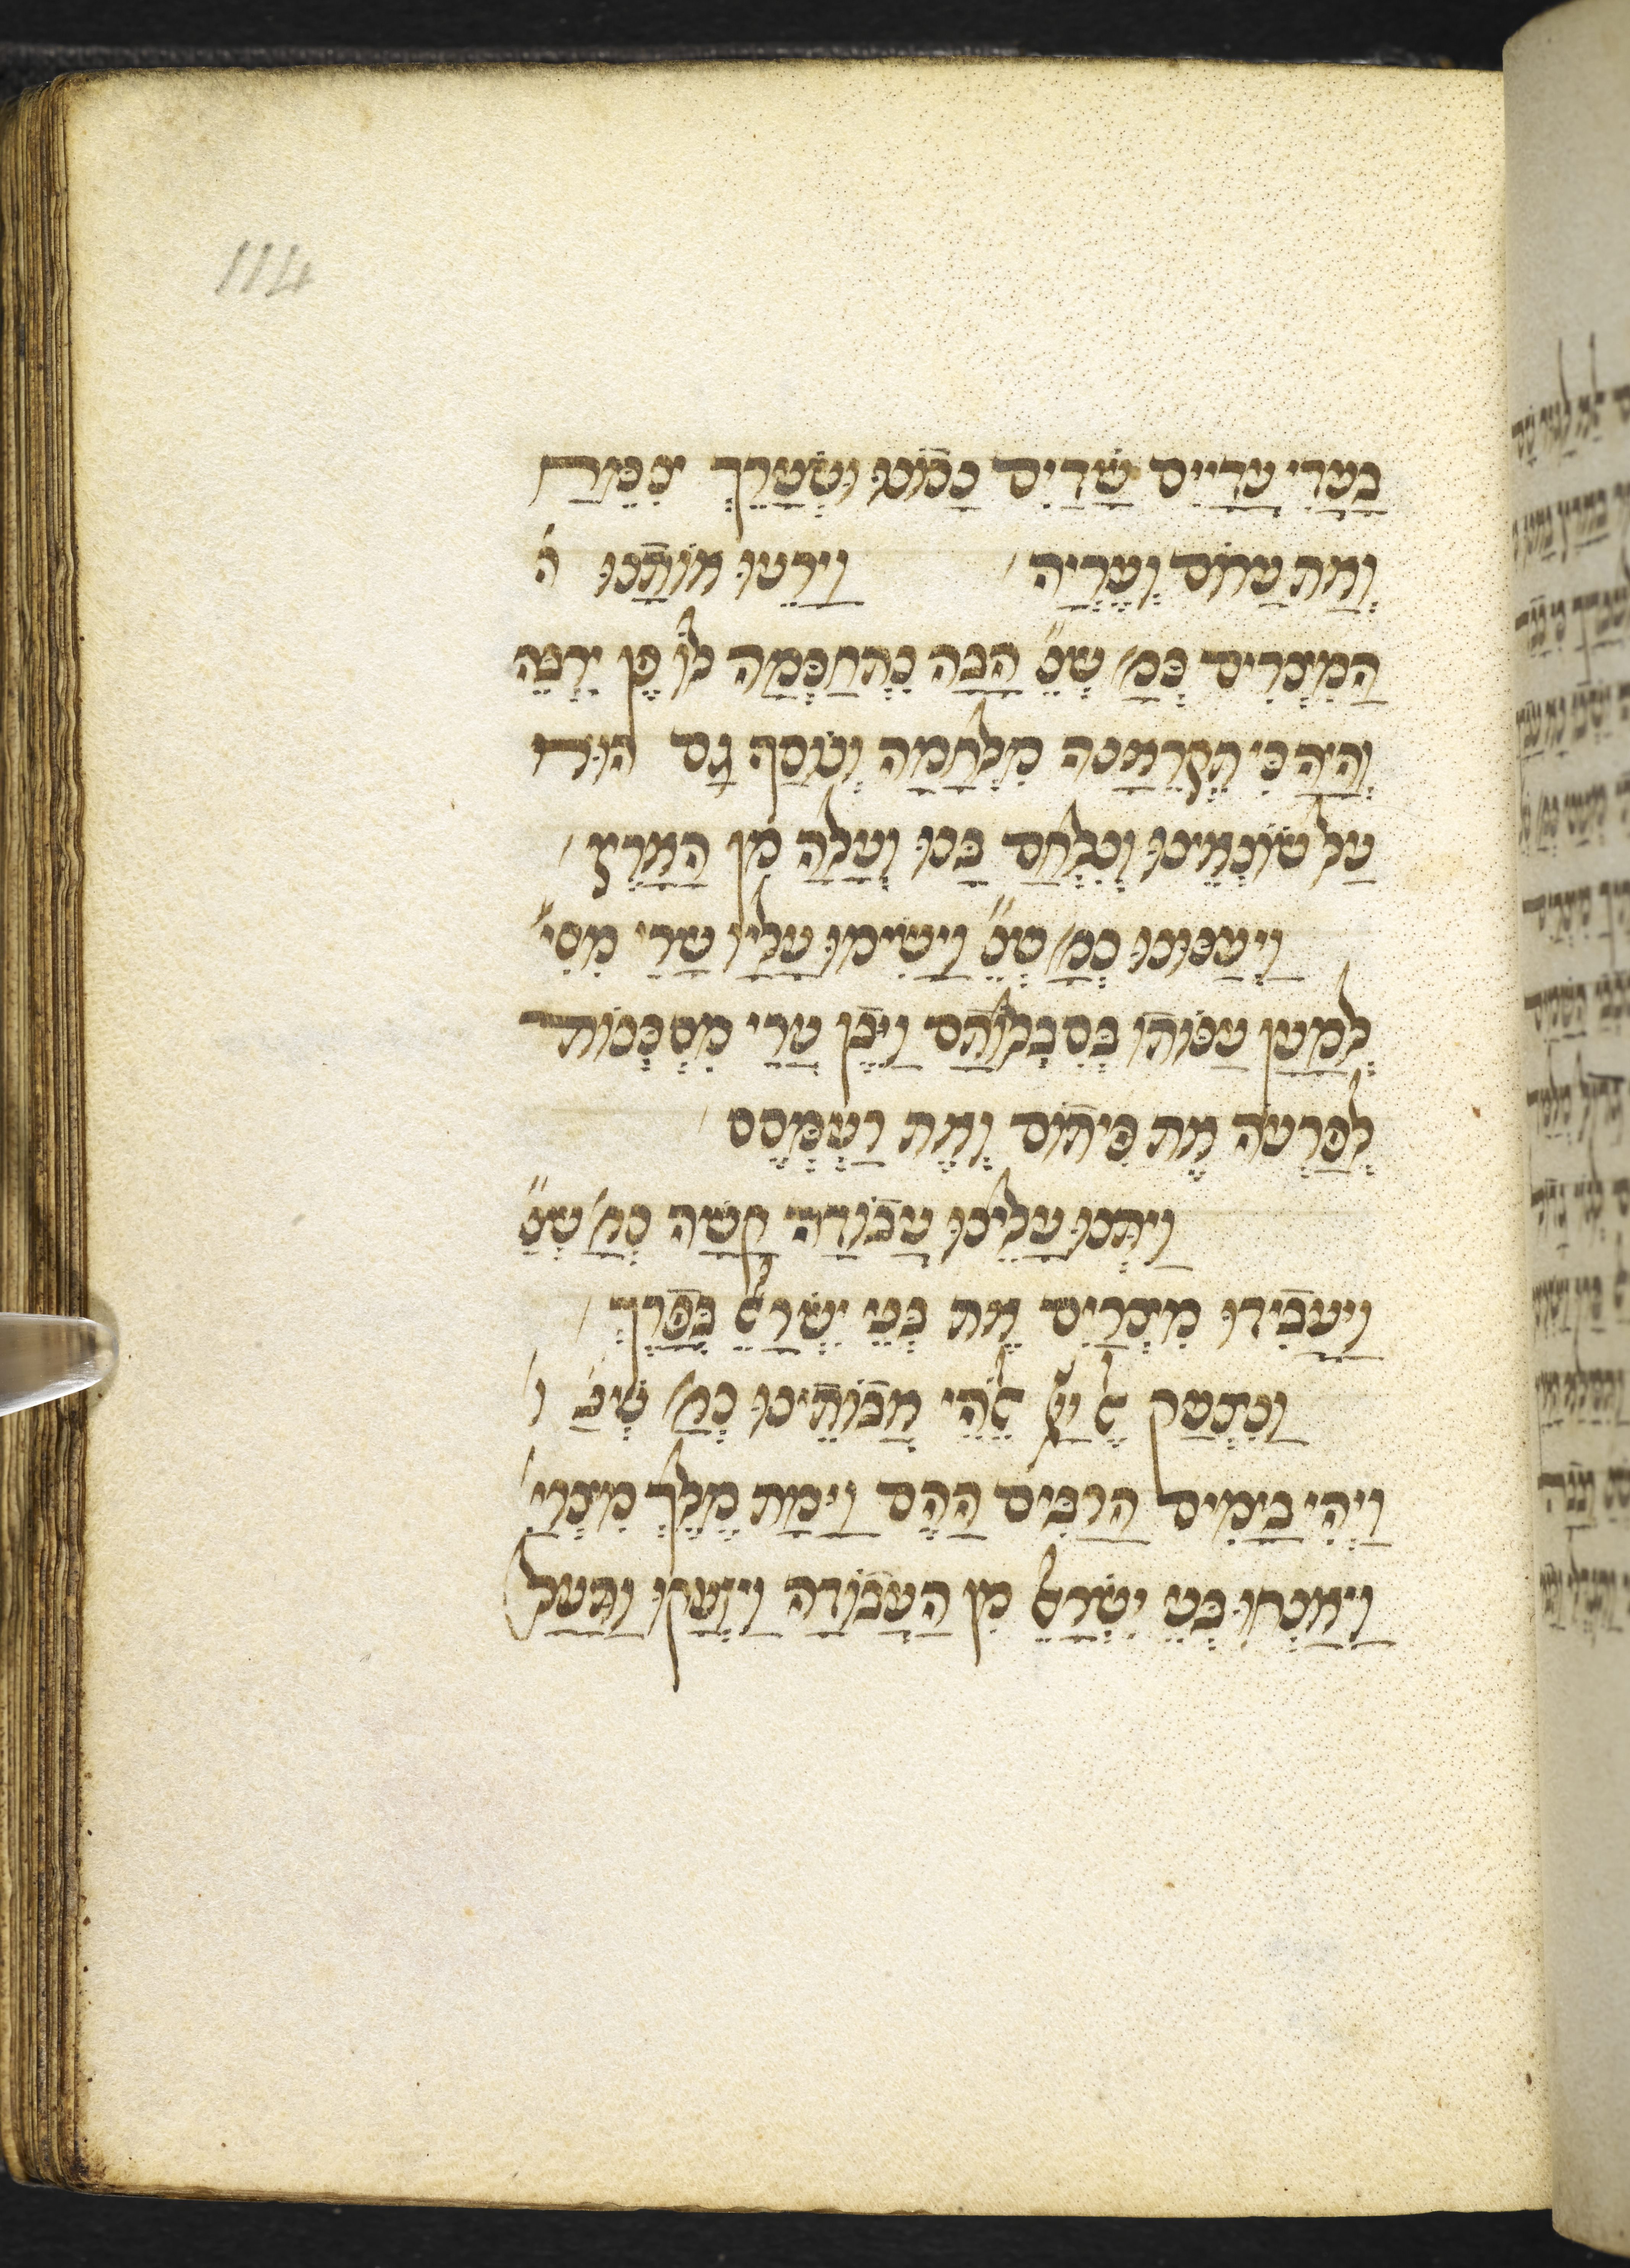 114
בַעֲדִי עֲדָיִים שָׁדַיִם נָכֹונוּ וּשְׂעָרֵךְ צִמֵּחַ
וְאַתְּ עֵרֹום וְעֶרְיָה׳ וַיָּרֵעוּ אוֹתָנוּ ה׳
הַמִּצְרִים כְּמַ׳ שֶׁנֶ״ הָבָה נִתְחַכְּמָה לוֹ פֶּן יִרְבֶּה
וְהָיָה כִּי תִקְרֶאנָה מִלְחָמָה וְנוֹסַף גַּם הוּא
עַל שׂוֹנְאֵינוּ וְנִלְחַם בָּנוּ וְעָלָה מִן הָאָרֶץ׳
וַיְעַנּוּנוּ כְּמַ׳ שֶׁנֶ״ וַיָּשִׂימוּ עָלָיו שָׂרֵי מִסִּי׳
לְמַעַן עַנּוֹתוֹ בְּסִבְלוֹתָם וַיִּבֶן עָרֵי מִסְכְּנוֹת
לְפַרְעֹה אֶת פִּיתוֹם וְאֶת רַעַמְסֵס׳
וַיִּתְּנוּ עָלֵינוּ עֲבוֹדָה קָשָׁה כְּמַ׳ שֶׁנֶ״
וַיַּעֲבִידוּ מִצְרַיִם אֶת בְּנֵי יִשְׂרָאֵל בְּפָרֶךְ׳
וַנִּצְעַק אֶל יְיָ אֱלֹהֵי אֲבוֹתֵינוּ כְּמַ׳ שֶׁנֶ׳ ו׳
וַיְהִי בַיָּמִים הָרַבִּים הָהֵם וַיָּמָת מֶלֶךְ מִצְרַיִ׳
וַיֵּאָנְחוּ בְּנֵי יִשְׂרָאֵל מִן הָעֲבוֹדָה וַיִּזְעָקוּ וַתַּעַל